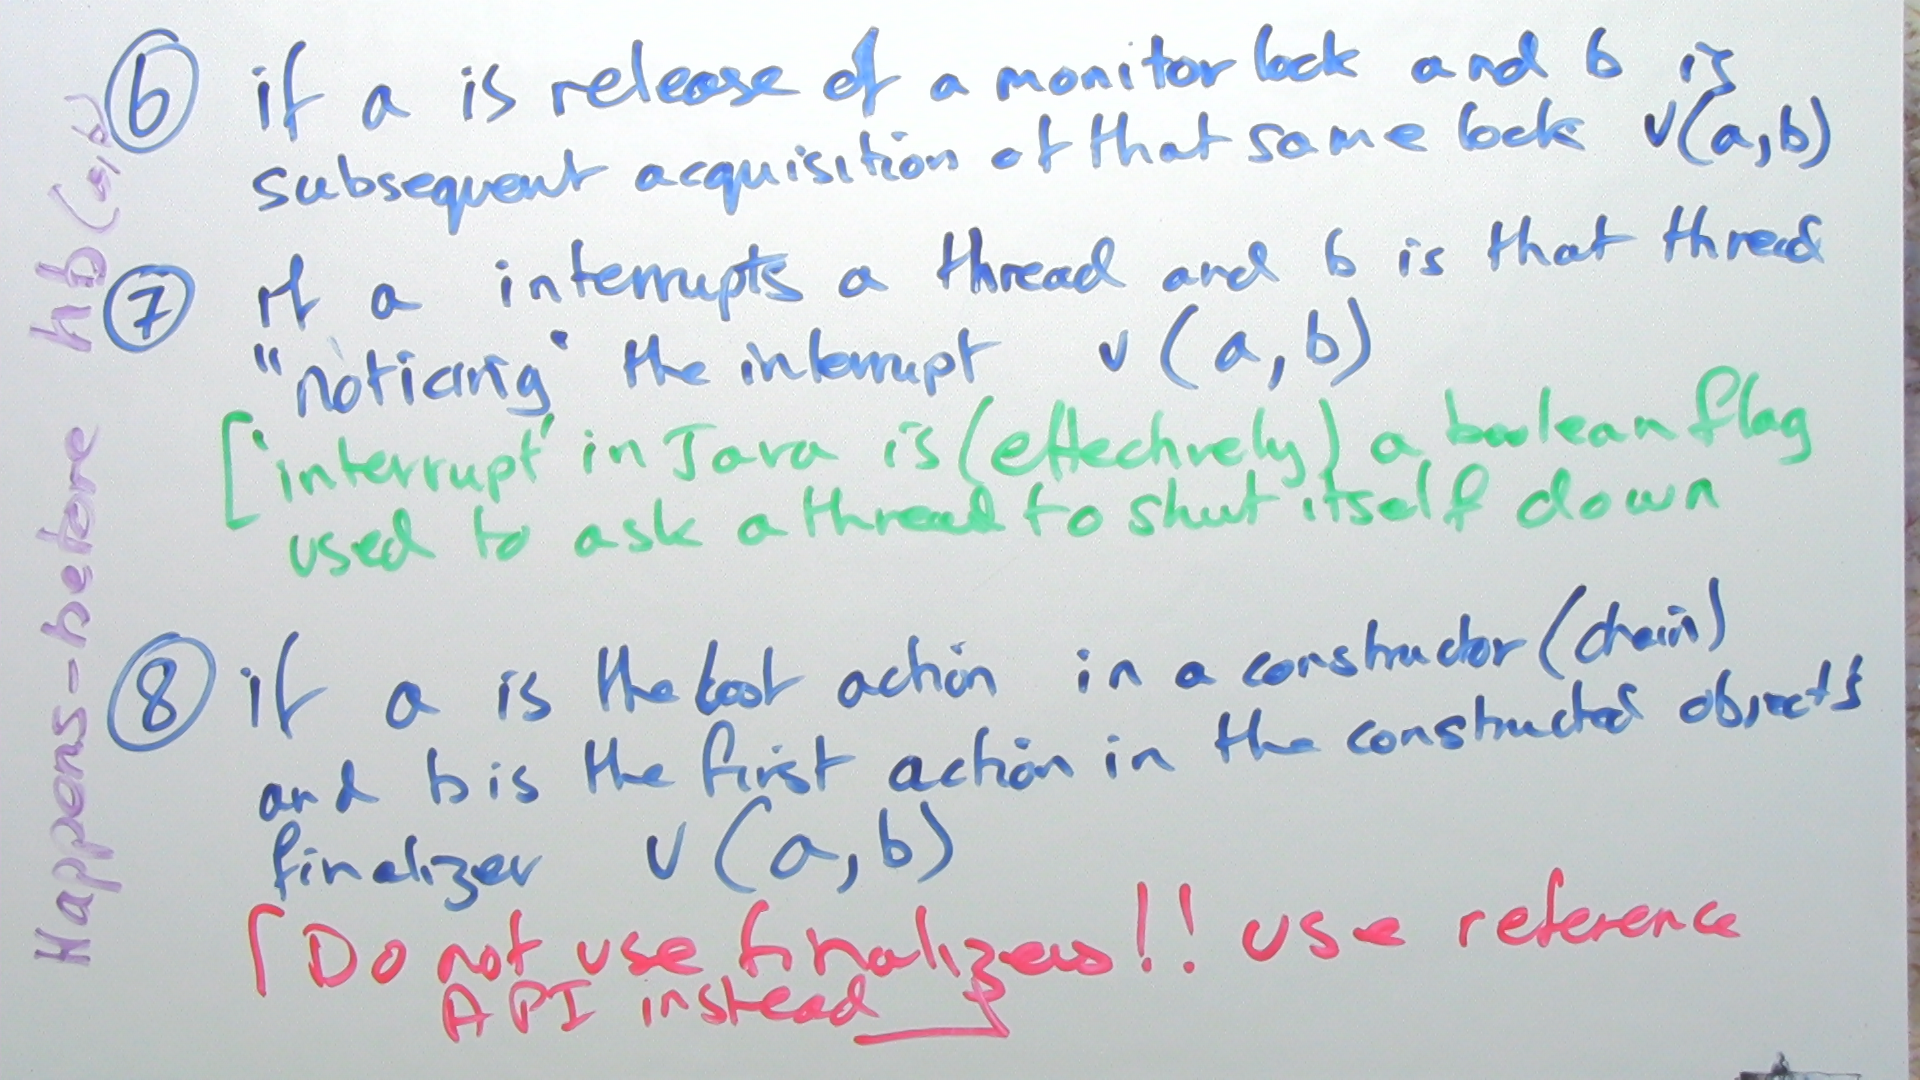 Happens-before hb(a,b)
⑥ if a is release of a monitor lock and b is
subsequent acquisition of that same lock v(a,b)
⑦ if a interrupts a thread and b is that thread
"noticing" the interrupt v(a,b)
['interrupt' in Java is (effectively) a boolean flag
used to ask a thread to shut itself down
⑧ if a is the last action in a constructor (chain)
and b is the first action in the constructed object's
finalizer v(a,b)
[Do not use finalizers!! use reference
API instead